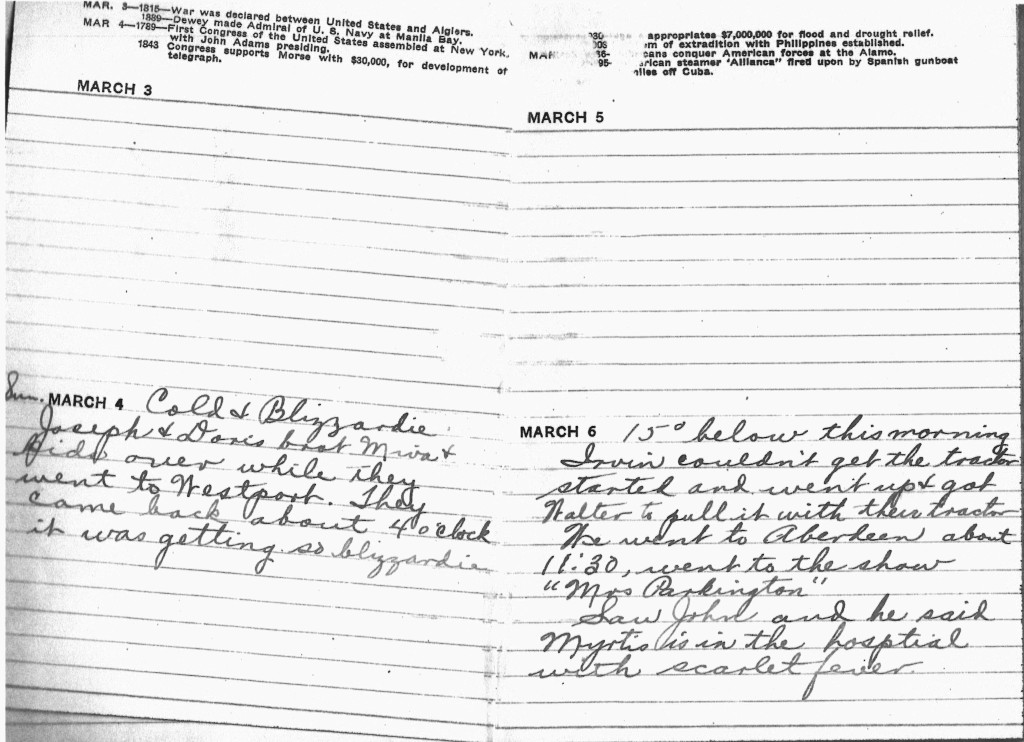 MAR. 3—1815—War was declared between United States and Algiers.
1889—Dewey made Admiral of U. S. Navy at Manila Bay.
MAR 4—1789—First Congress of the United States assembled at New York,
with John Adams presiding.
1843 Congress supports Morse with $30,000, for development of
telegraph.
MARCH 3
Sun. MARCH 4 Cold & Blizzardie.
Joseph & Doris brot Miva &
over while they
went to Westport. They
came back about 4 o'clock
it was getting so blizzardie
appropriates $7,000,000 for flood and drought relief.
of extradition with Philippines established.
conquer American forces at the Alamo.
steamer "Allianca" fired upon by Spanish gunboat
off Cuba.
MARCH 5
MARCH 6 15° below this morning
Irvin couldn't get the tractor
started and went up & got
Walter to pull it with their tractor
We went to Aberdeen about
11:30, went to the show
"Mrs Parkington"
Saw John and he said
Myrtis is in the hosptial
with scarlet fever.